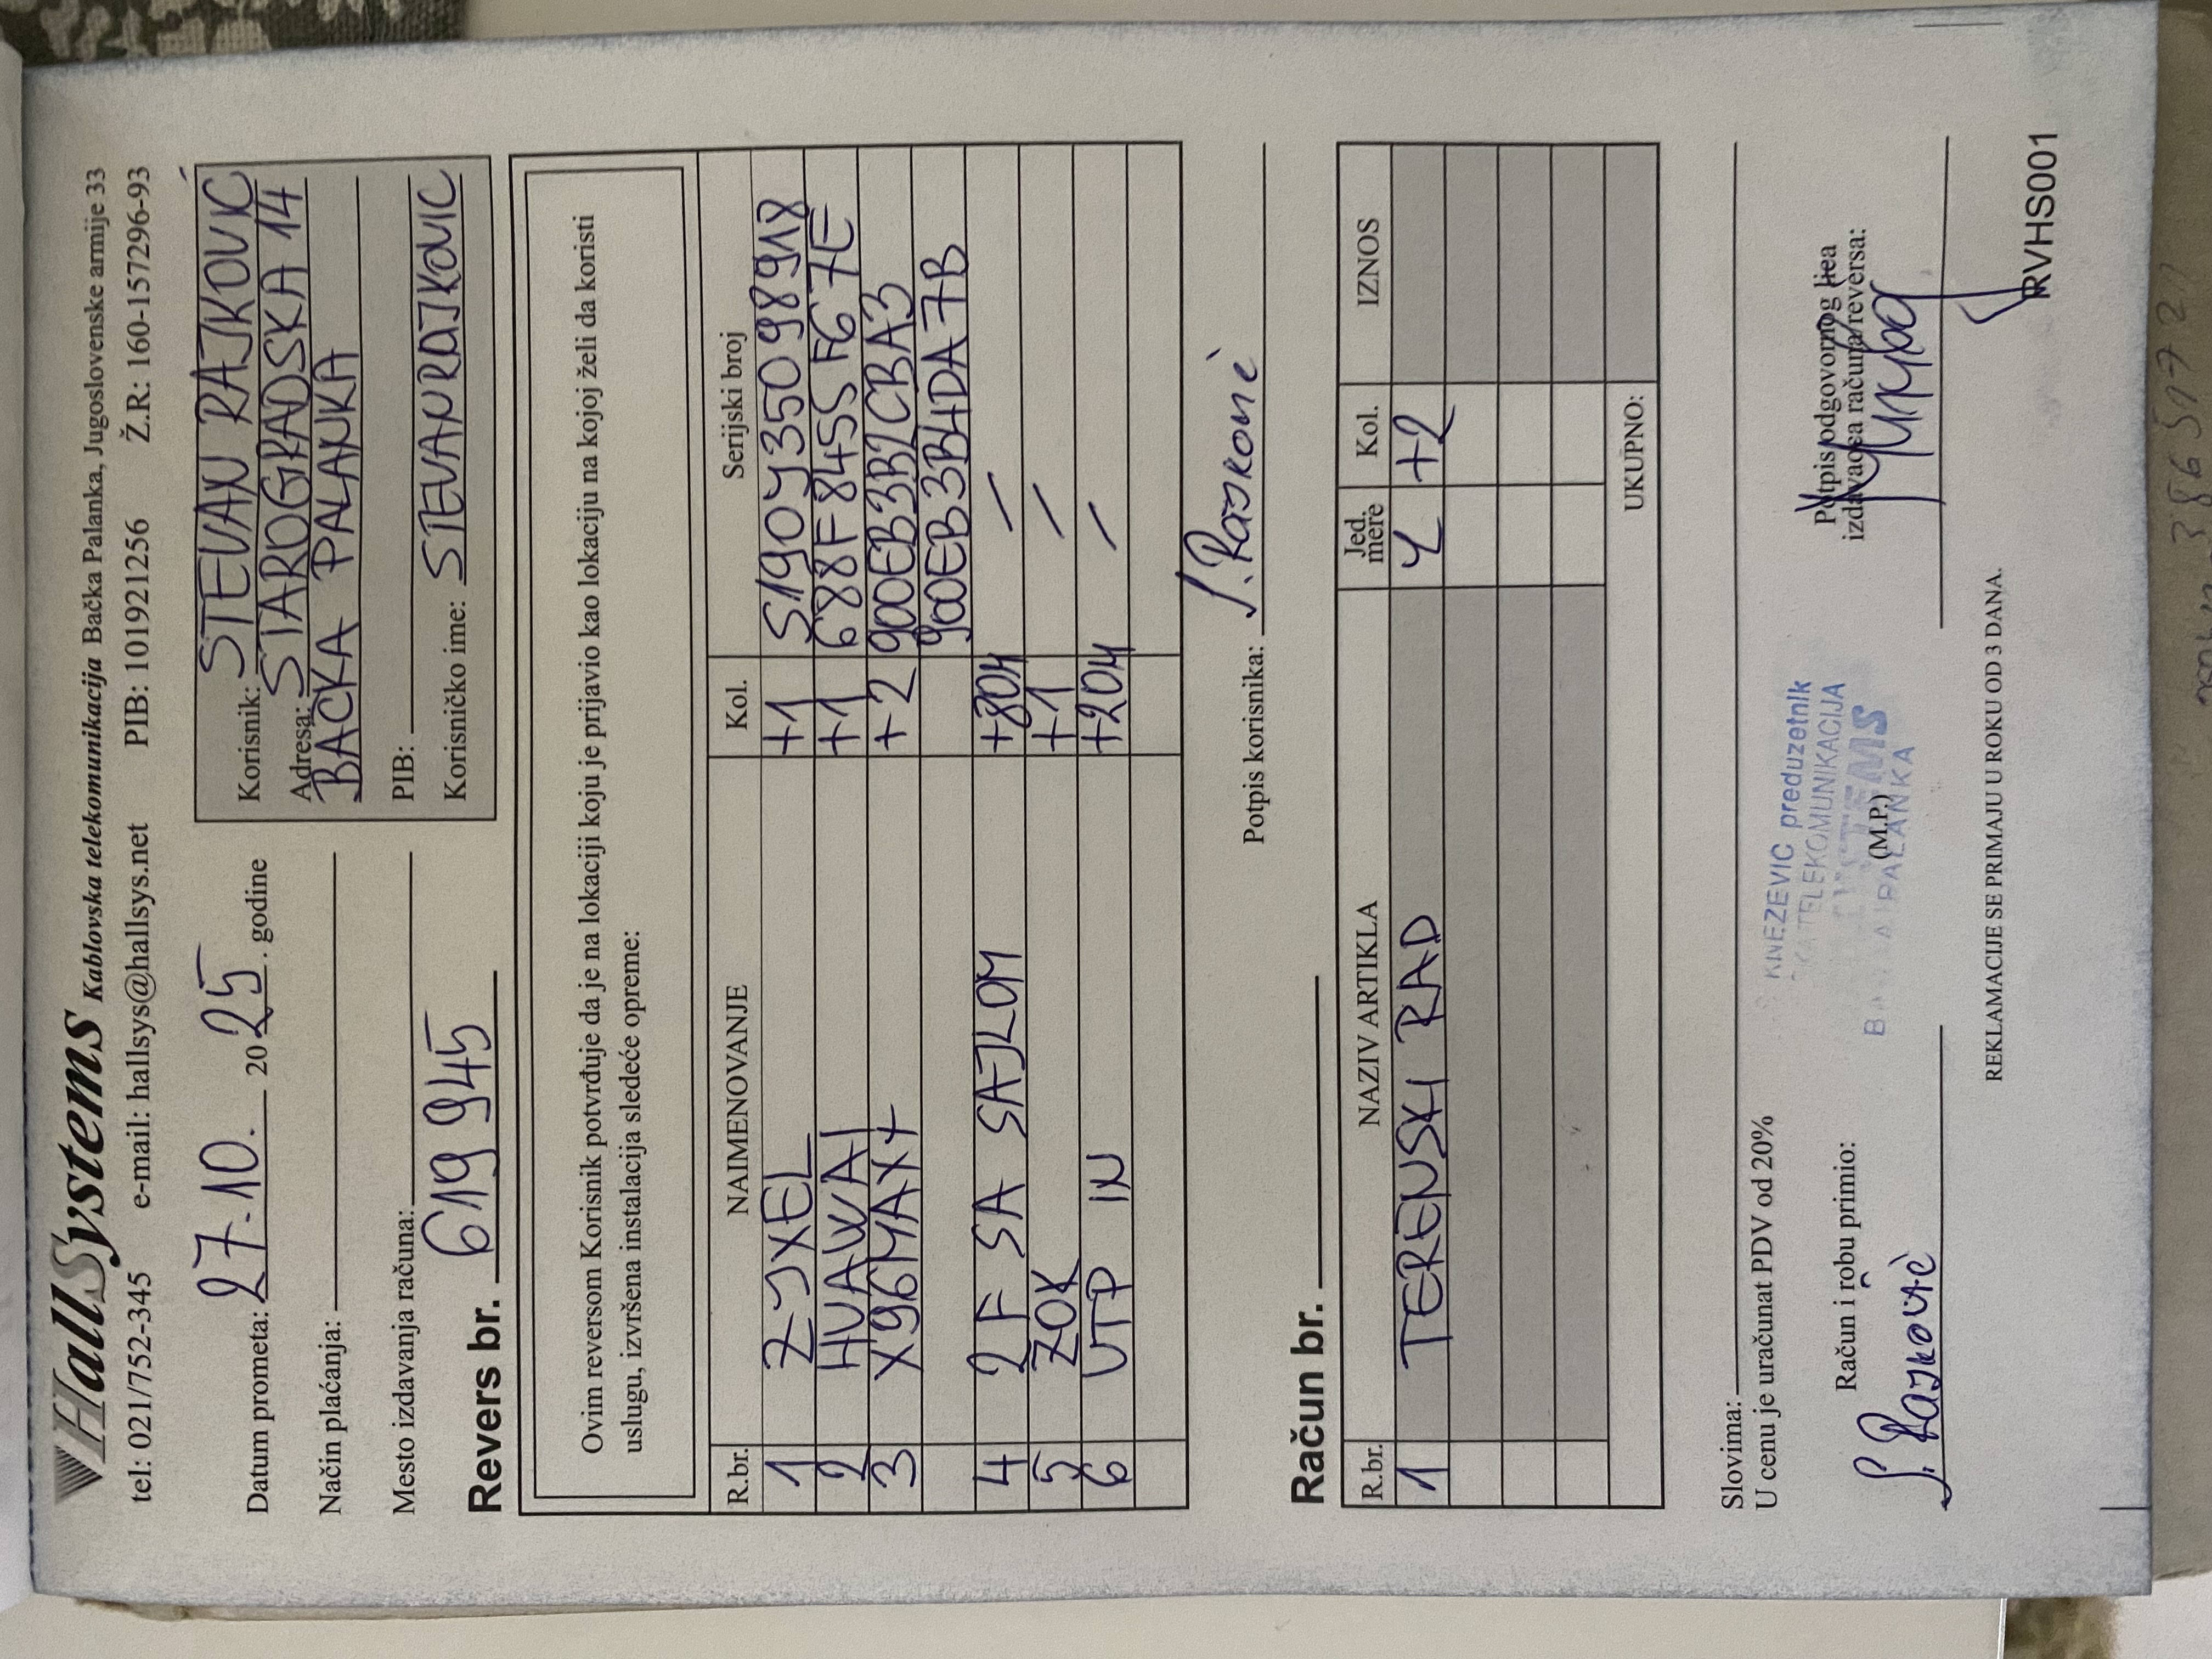 HallSystems Kablovska telekomunikacija Bačka Palanka, Jugoslovenske armije 33
tel: 021/752-345 e-mail: hallsys@hallsys.net PIB: 101921256 Ž.R.: 160-157296-93
Datum prometa: 27.10. 2025. godine
Način plaćanja:
Mesto izdavanja računa:
Revers br. 619 945
Korisnik: STEVAN RAJKOVIĆ
Adresa: STAROGRADSKA 14
BAČKA PALANKA
PIB:
Korisničko ime: STEVANRAJKOVIC
Ovim reversom Korisnik potvrđuje da je na lokaciji koju je prijavio kao lokaciju na kojoj želi da koristi
uslugu, izvršena instalacija sledeće opreme:
R.br. NAIMENOVANJE Kol. Serijski broj
1 ZYXEL +1 S190Y35098918
2 HUAWAI +1 688F845SF67E
3 X96MAX+ +2 900EB3B2CBA3
900EB3B4DA7B
4 2F SA SAJLOM +80M —
5 ZOK +1 —
6 UTP IN +20M —
Potpis korisnika: S. Rajković
Račun br.
R.br. NAZIV ARTIKLA Jed. mere Kol. IZNOS
1 TERENSKI RAD Č +2
UKUPNO:
Slovima:
U cenu je uračunat PDV od 20%
KNEZEVIC preduzetnik
TELEKOMUNIKACIJA
PALANKA
Račun i robu primio:
(M.P.)
Potpis odgovornog lica
izdavaoca računa/reversa:
S. Rajković
REKLAMACIJE SE PRIMAJU U ROKU OD 3 DANA.
RVHS001